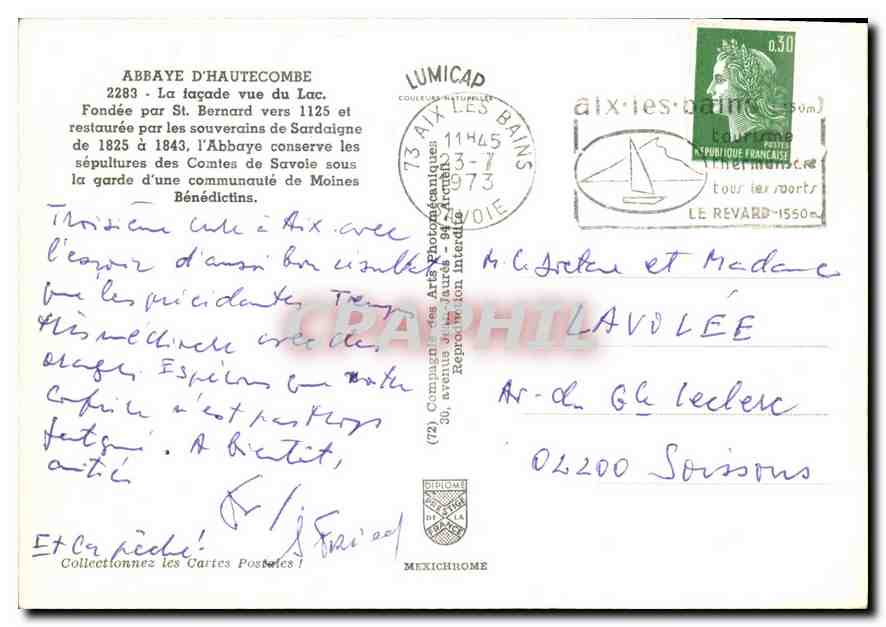 ABBAYE D'HAUTECOMBE
2283 - La façade vue du Lac.
Fondée par St. Bernard vers 1125 et
restaurée par les souverains de Sardaigne
de 1825 à 1843, l'Abbaye conserve les
sépultures des Comtes de Savoie sous
la garde d'une communauté de Moines
Bénédictins.
Troisième cure à Aix avec
l'espoir d'aussi bon résultat
que les précédentes Temps
très médiocre avec des
orages Espérons que notre
n'est pas trop
fatigué. A bientôt,
amitiés
Et Ca pêche!
Collectionnez les Cartes Postales !
LUMICAP
COULEURS NATURELLES
73 AIX LES BAINS
11H45
23-7
1973
SAVOIE
(72) Compagnie des Arts Photomécaniques
30, avenue Jean-Jaurès - 94 - Arcueil
Reproduction interdite
DIPLOME
PRESTIGE
DE LA
FRANCE
MEXICHROME
0,30
POSTES
REPUBLIQUE FRANÇAISE
aix-les-bains
tourisme
thermalisme
tous les sports
LE REVARD-1550m
M. le Docteur et Madame
LAVOLÉE
Av. du Gl Leclerc
02200 Soissons
CPAPHIL